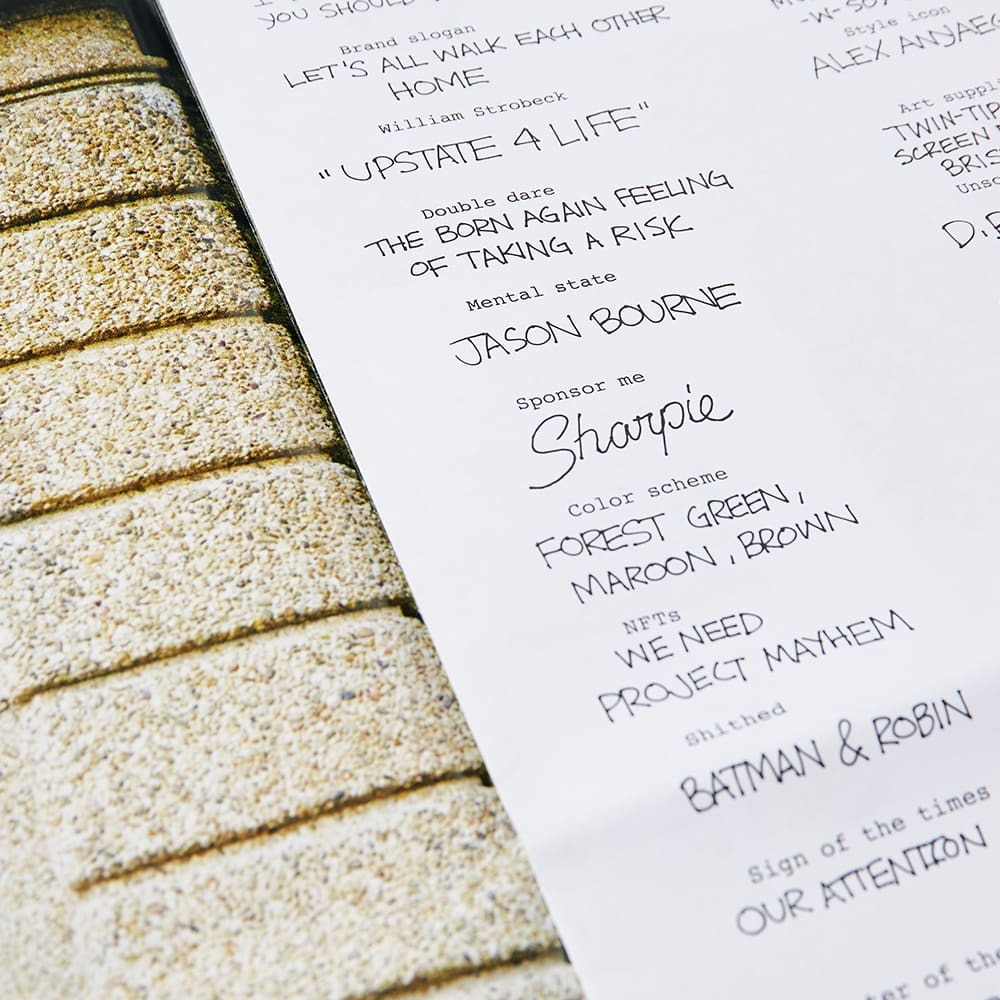 YOU SHOULD
Brand slogan
LET'S ALL WALK EACH OTHER
HOME
William Strobeck
"UPSTATE 4 LIFE"
Double dare
THE BORN AGAIN FEELING
OF TAKING A RISK
Mental state
JASON BOURNE
Sponsor me
Sharpie
Color scheme
FOREST GREEN,
MAROON, BROWN
NFTs
WE NEED
PROJECT MAYHEM
Shithed
BATMAN & ROBIN
Sign of the times
OUR ATTENTION
of the
-W-
Style icon
ALEX
Art
TWIN-TIP
SCREEN